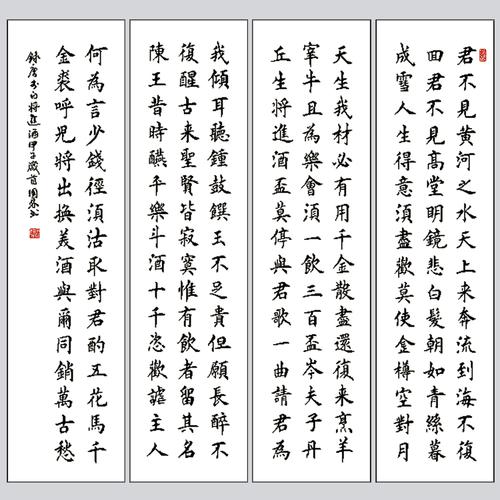 君不見黃河之水天上来奔流到海不復
囬君不見高堂明鏡悲白髮朝如青絲暮
成雪人生得意須盡歡莫使金樽空對月
天生我材必有用千金散盡還復来烹羊
宰牛且為樂會須一飲三百盃岑夫子丹
丘生將進酒盃莫停與君歌一曲請君為
我傾耳聽鍾鼓饌玉不足貴但願長醉不
復醒古来聖賢皆寂寞惟有飲者留其名
陳王昔時讌平樂斗酒十千恣歡謔主人
何為言少錢徑須沽取對君酌五花馬千
金裘呼兒將出換美酒與爾同銷萬古愁
錄唐李白將進酒甲子歲首